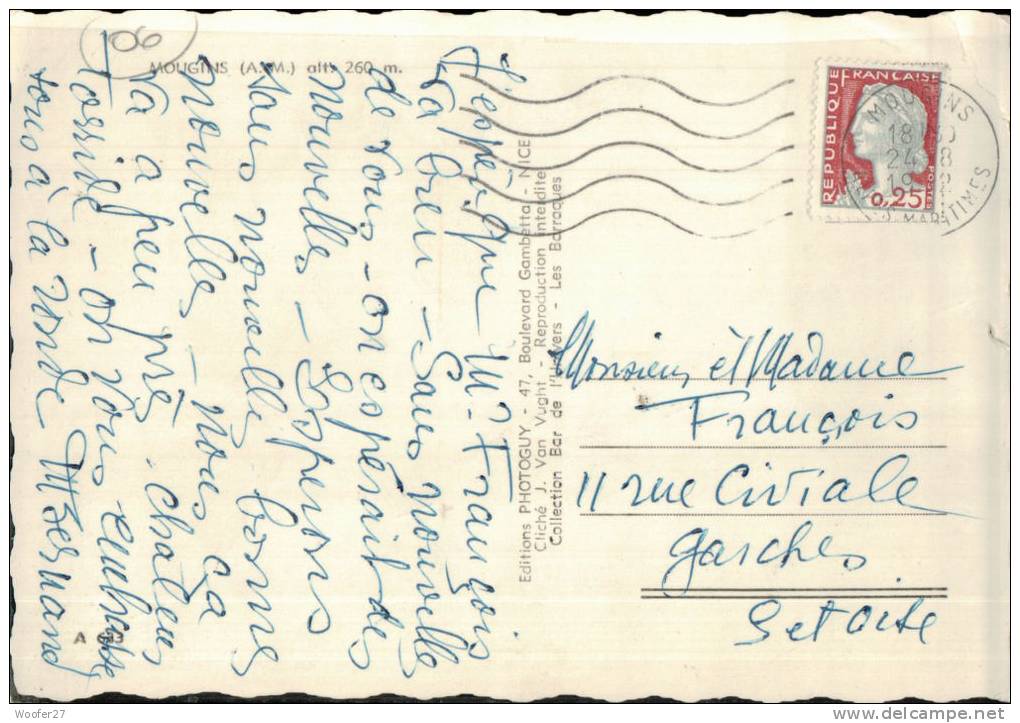 06
MOUGINS (A.-M.) alt. 260 m.
J'espère que Mr. François
va bien - Sans nouvelle
de vous - on espérait des
nouvelles - Espérons
sans nouvelle bonne
nouvelle - nous ça
va à peu près - chaleur
torride - on vous embrasse
tous à la ronde
A
Editions PHOTOGUY - 47, Boulevard Gambetta - NICE
Cliché J. Van Vught - Reproduction interdite
Collection Bar de l'Univers - Les Barraques
REPUBLIQUE FRANCAISE
POSTES
0,25
MOUGINS
24-8
MARITIMES
Monsieur et Madame
François
11 rue Civiale
Garches
Set Oise
Woofer27
delcampe.net